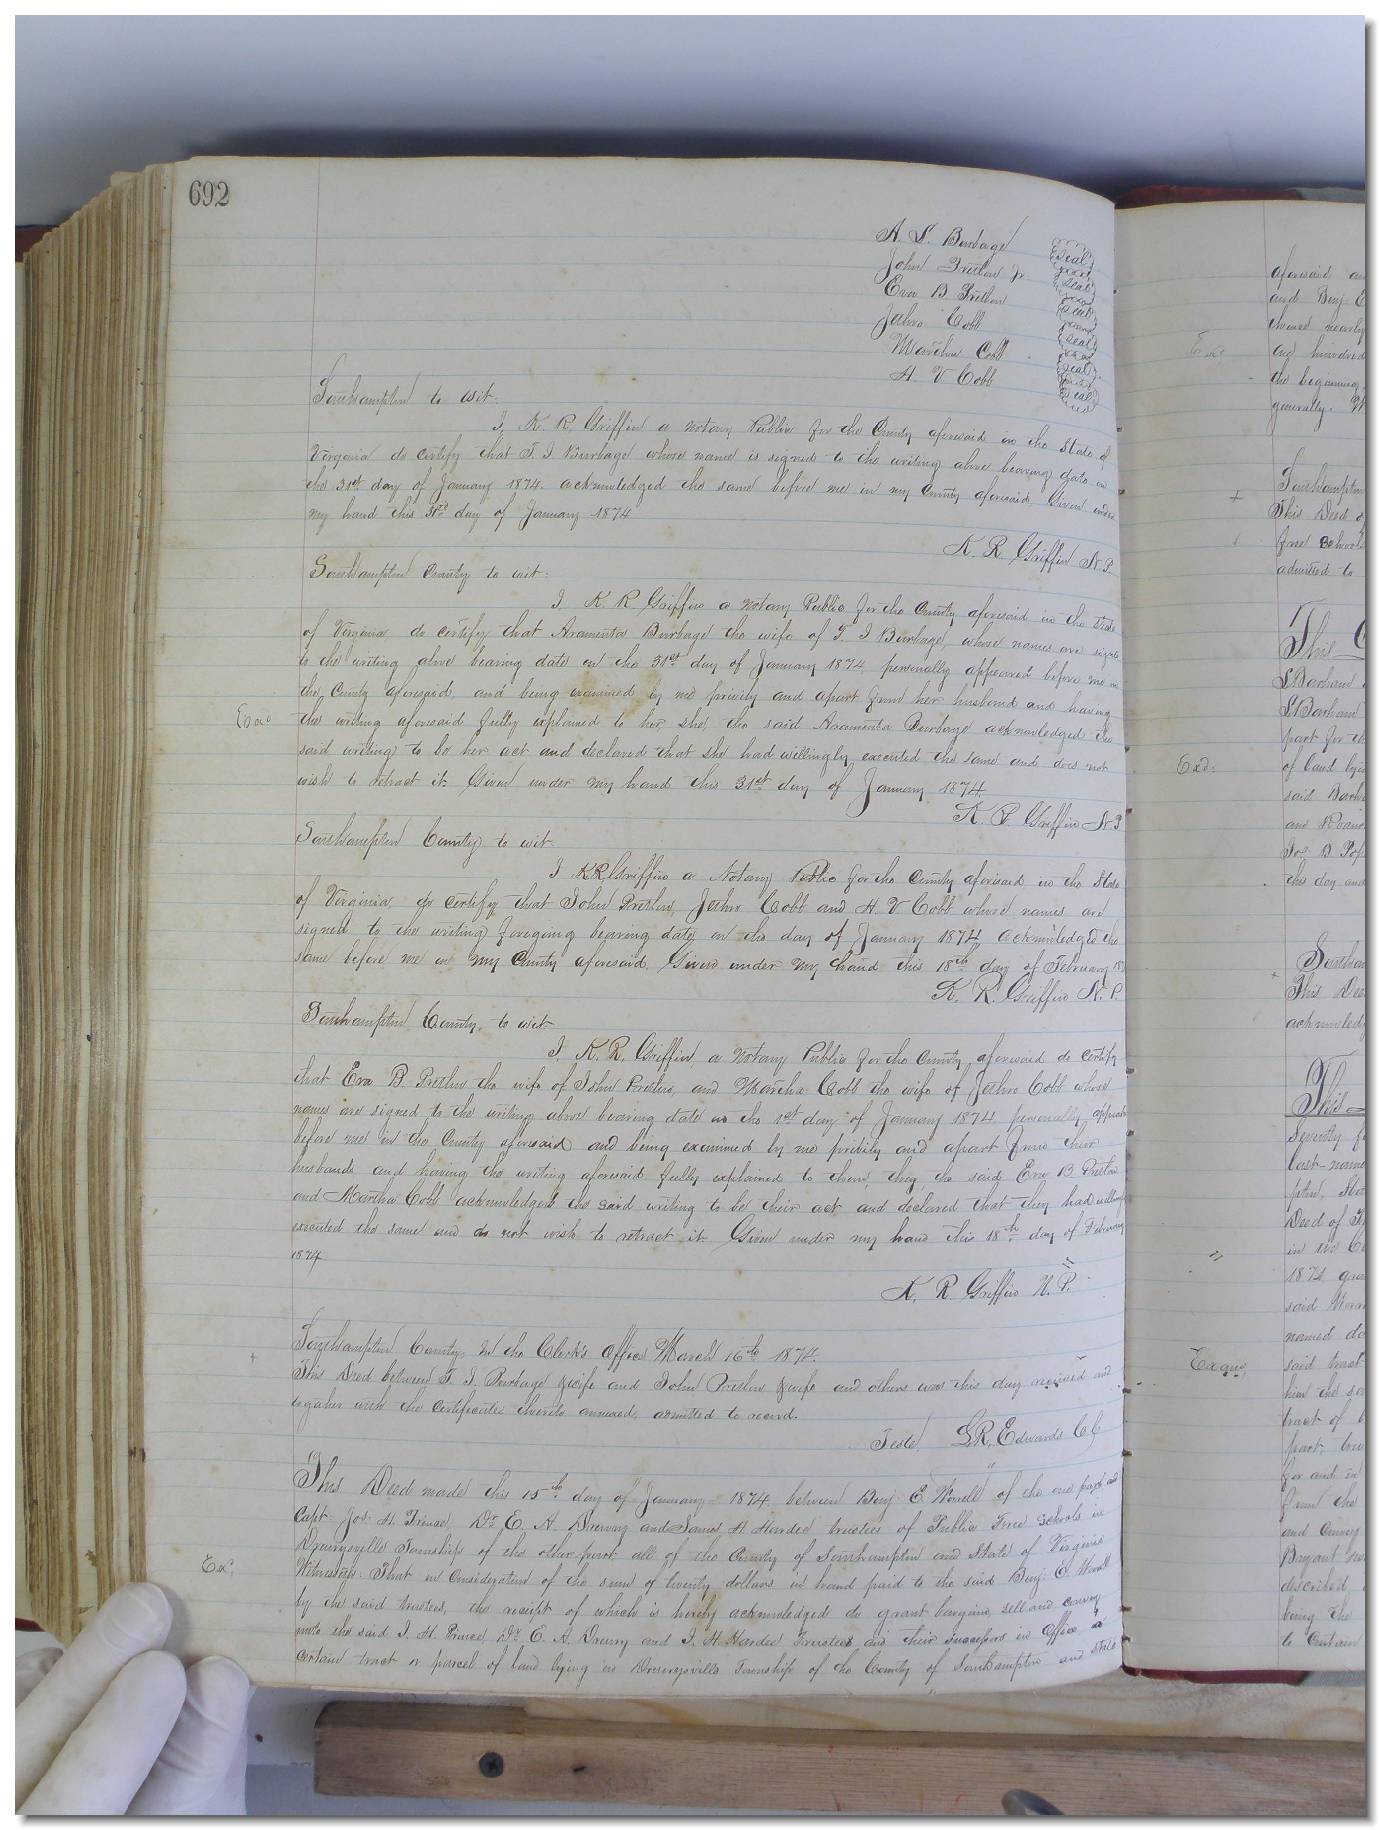 692
A. S. Burbage seal
John Pretlow Jr seal
Eva B. Pretlow seal
Jethro Cobb seal
Martha Cobb seal
H V Cobb seal
Southampton to wit.
I, K. R. Griffin a Notary Public for the County aforesaid in the State of
Virginia do certify that T. I Burbage whose name is signed to the writing above bearing date on
the 31st day of January 1874 acknowledged the same before me in my County aforesaid. Given under
my hand this 31st day of January 1874
K. R. Griffin N.P.
Southampton County to wit:
I K R Griffin a Notary Public for the County aforesaid in the State
of Virginia do certify that Araminta Burbage the wife of T. I Burbage, whose names are signed
to the writing above bearing date on the 31st day of January 1874 personally appeared before me in
the County aforesaid and being examined by me privily and apart from her husband and having
Exd
the writing aforesaid fully explained to her, she, the said Araminta Burbage acknowledged the
said writing to be her act and declared that she had willingly executed the same and does not
wish to retract it. Given under my hand this 31st day of January 1874
K. R. Griffin N.P
Southampton County to wit
I K R Griffin a Notary Public for the County aforesaid in the State
of Virginia do certify that John Pretlow, Jethro Cobb and H. V Cobb whose names are
signed to the writing foregoing bearing date on the day of January 1874 acknowledged the
same before me in my County aforesaid. Given under my hand this 18th day of February
K. R. Griffin N.P.
Southampton County, to wit
I K. R. Griffin, a Notary Public for the County aforesaid do certify
that Eva B. Pretlow the wife of John Pretlow, and Martha Cobb the wife of Jethro Cobb whose
names are signed to the writing above bearing date on the 1st day of January 1874 personally
before me in the County aforesaid and being examined by me privily and apart from their
husbands and having the writing aforesaid fully explained to them, they the said Eva B Pretlow
and Martha Cobb acknowledged the said writing to be their act and declared that they had willingly
executed the same and do not wish to retract it. Given under my hand this 18th day of February
1874
K. R. Griffin N. P.
Southampton County, In the Clerk's Office March 16th 1874.
This Deed between T. I. Burbage & wife and John Pretlow & wife and others was this day received and
together with the certificates thereto annexed, admitted to record.
Teste L. R. Edwards C.C
This Deed made this 15th day of January 1874, between Benj: E. Worrell of the one part and
Capt. Jos: H. Prince, Dr. E. A. Drewry and James H Hardee trustees of Public Free Schools in
Drewrysville Township of the other part all of the County of Southampton and State of Virginia
Exd
Witnesseth: That in Consideration of the sum of twenty dollars in hand paid to the said Benj: E. Worrell
by the said trustees, the receipt of which is hereby acknowledged do grant bargain, sell and convey
unto the said J. H. Prince, Dr. E. A. Drewry and J. H. Hardee Trustees and their successors in Office a
certain tract or parcel of land lying in Drewrysville Township of the County of Southampton and State
aforesaid
and Benj E
generally.
Southampton
This Deed
free Schools
admitted to
This
Exd:
L Barham
part for the
of land lying
said
the day and
This Deed
acknowledg
This
Seventy
last named
Deed of
in the
1874
said
named
said tract
him the
tract of
part
for and in
from the
and Convey
Bryant
described
being the
to